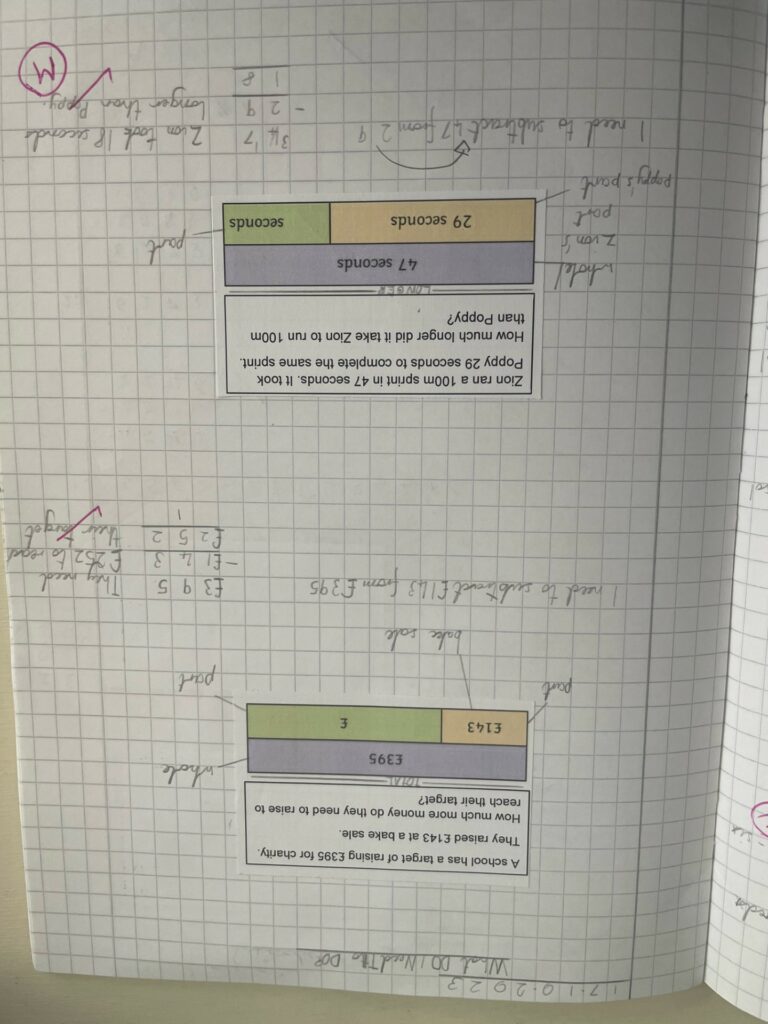 17.10.2023
What DO I Need To DO?
A school has a target of raising £395 for charity.
They raised £143 at a bake sale.
How much more money do they need to raise to
reach their target?
TOTAL
£395
whole
£143
£
part
part
bake sale
I need to subtract £143 from £395
£3 9 5
- £1 4 3
£2 5 2
1
They need
£252 to
their target
Zion ran a 100m sprint in 47 seconds. It took
Poppy 29 seconds to complete the same sprint.
How much longer did it take Zion to run 100m
than Poppy?
LONGER
47 seconds
whole/
Zion's
part
29 seconds
seconds
Poppy's part
part
I need to subtract 47 from 29
3 4 1 7
- 2 9
1 8
Zion took 18 seconds
longer than Poppy.
M